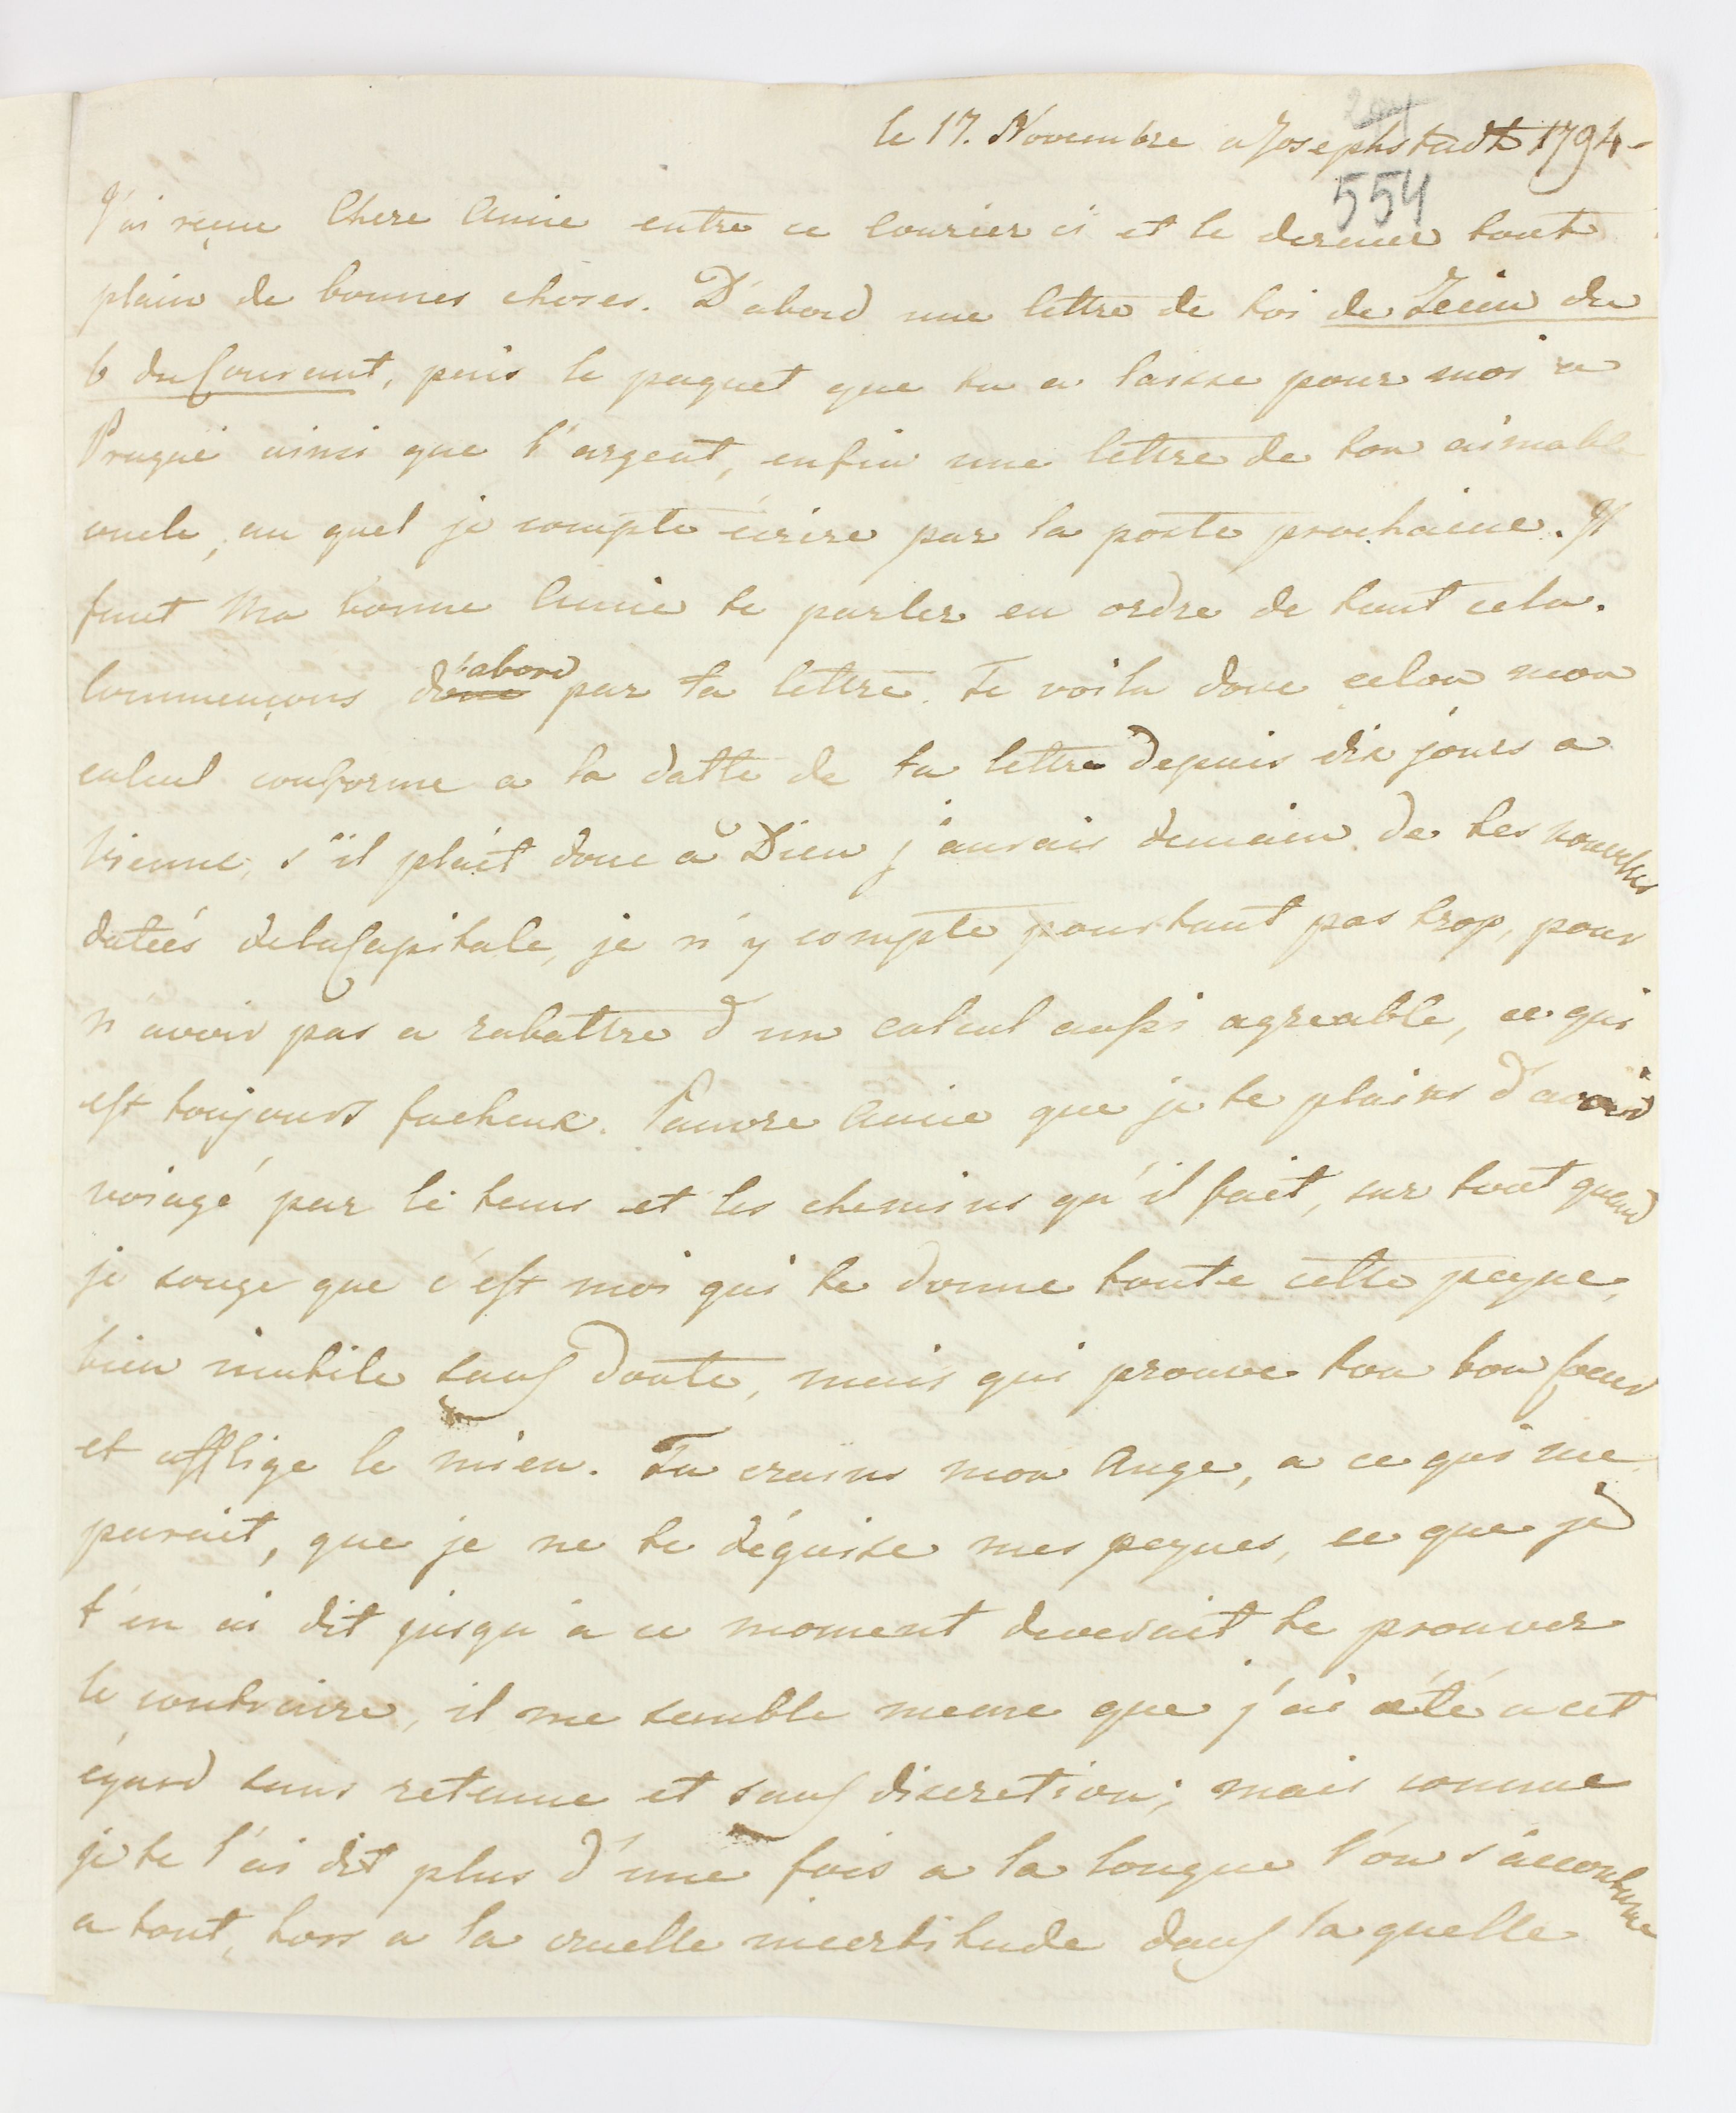 le 17. Novembre a Josephstadt 1794.
554
J'ai reçue Chere Amie entre ce Courier ci et le dernier tout
plain de bonnes choses. D'abord une lettre de toi de Zeim du
6 du Courant, puis le paquet que tu a laisse pour moi a
Prague ainsi que l'argent, enfin une lettre de ton aimable
oncle, au quel je compte écrire par la poste prochaine. Il
faut Ma bonne Amie te parler en ordre de tout cela.
Commençons donc d'abord par ta lettre. Te voila donc celon mon
calcul conforme a la datte de ta lettre depuis dix jours a
Vienne, s'il plait donc a Dieu j'aurais demain de tes nouvelles
datées de la Capitale, je n'y compte pourtant pas trop, pour
n'avoir pas a rabattre d'un calcul aussi agreable, ce qui
est toujours facheux. Pauvre Amie que je te plains d'avoir
voiagé par le tems et les chemins qu'il fait, sur tout quand
je songe que c'est moi qui te donne toute cette peyne,
bien inutile sans doute, mais qui prouve ton bon Coeur
et afflige le mien. Tu crains mon Ange, a ce qui me
parait, que je ne te déguise mes peynes, ce que je
t'en ai dit jusqu'à ce moment deverait te prouver
le contraire, il me semble meme que j'ai été a cet
égard sans retenue et sans discretion; mais comme
je te l'ai dit plus d'une fois a la longue l'on s'accoutume
a tout, hors a la cruelle incertitude dans laquelle